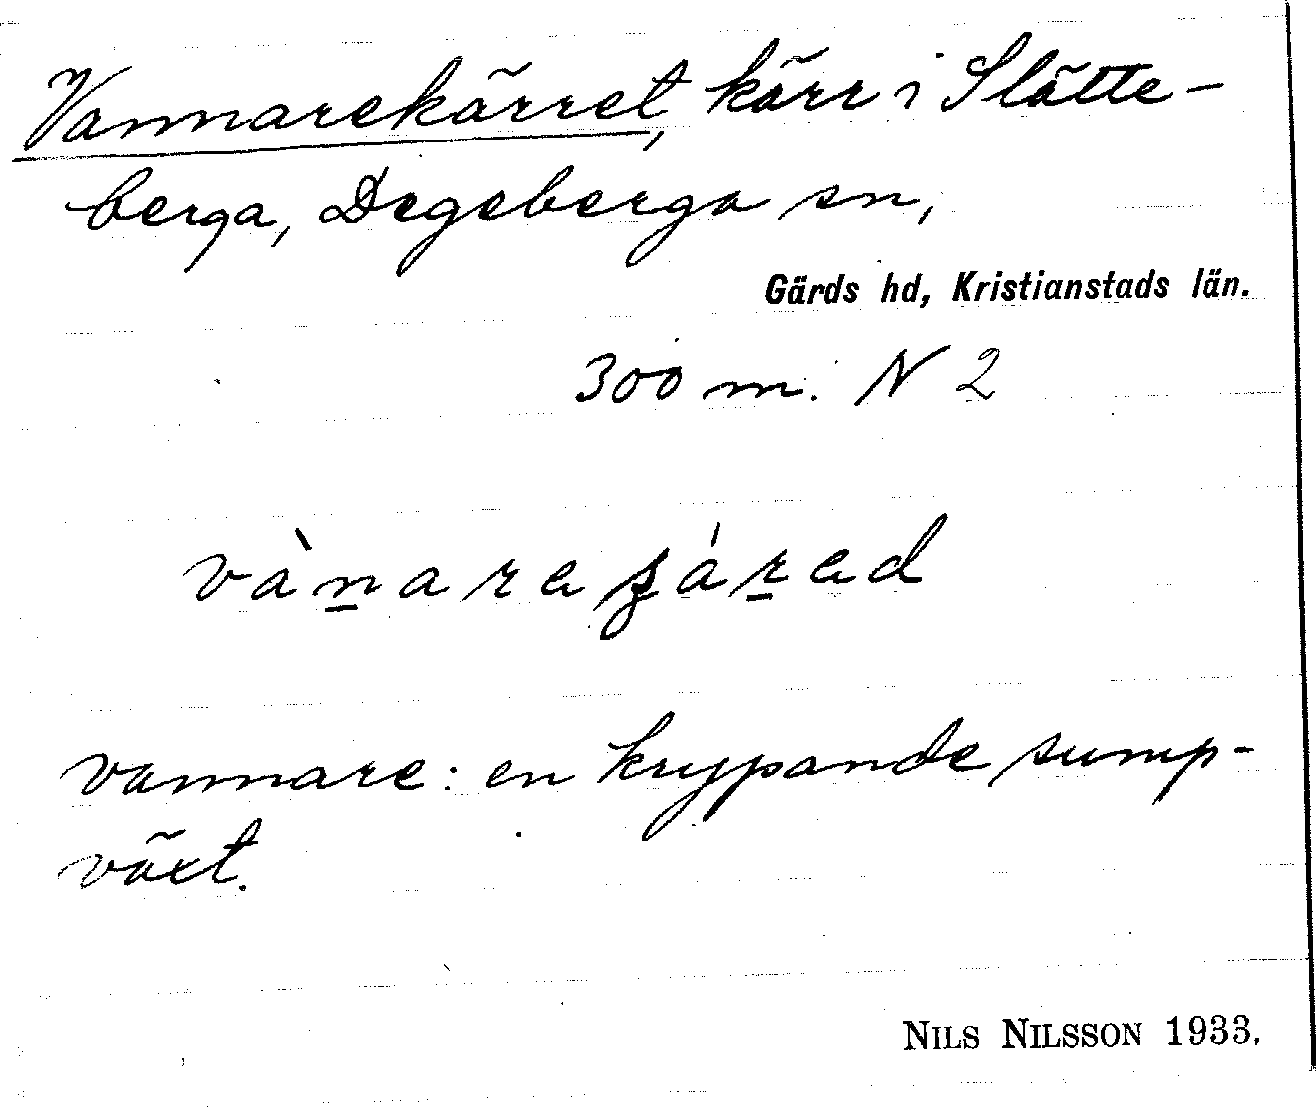 Vannarekärret, kärr i Slätte-
berga, Degeberga sn,
Gärds hd, Kristianstads län.
300 m. N 2
vannare: en krypande sump-
växt.
NILS NILSSON 1933.